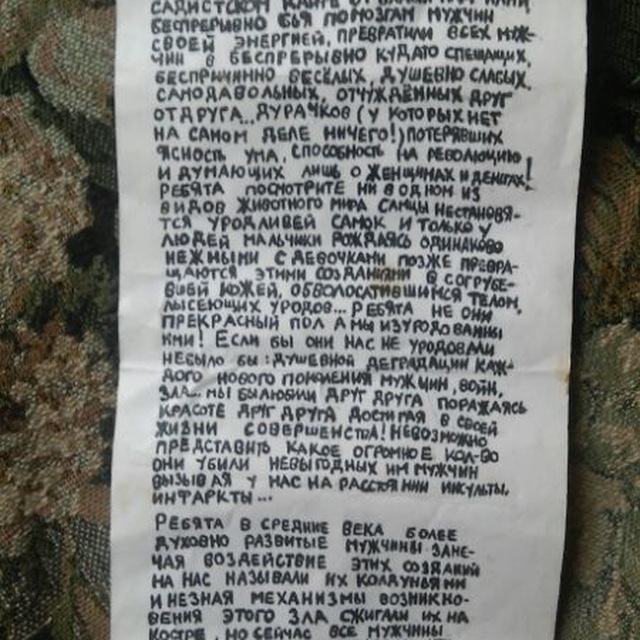 САДИСТСКОМ
БЕСПРЕРЫВНО БЬЯ ПО МОЗГАМ МУЖЧИН
СВОЕЙ ЭНЕРГИЕЙ, ПРЕВРАТИЛИ ВСЕХ МУЖ-
ЧИН В БЕСПРЕРЫВНО КУДАТО СПЕШАЩИХ,
БЕСПРИЧИННО ВЕСЁЛЫХ, ДУШЕВНО СЛАБЫХ,
САМОДАВОЛЬНЫХ, ОТЧУЖДЁННЫХ ДРУГ
ОТДРУГА.. ДУРАЧКОВ (У КОТОРЫХ НЕТ
НА САМОМ ДЕЛЕ НИЧЕГО!) ПОТЕРЯВШИХ
ЯСНОСТЬ УМА, СПОСОБНОСТЬ НА РЕВОЛЮЦИЮ
И ДУМАЮЩИХ ЛИШЬ О ЖЕНЩИНАХ И ДЕНЬГАХ!
РЕБЯТА ПОСМОТРИТЕ НИ В ОДНОМ ИЗ
ВИДОВ ЖИВОТНОГО МИРА САМЦЫ НЕСТАНОВЯ-
ТСЯ УРОДЛИВЕЙ САМОК И ТОЛЬКО У
ЛЮДЕЙ МАЛЬЧИКИ РОЖДАЯСЬ ОДИНАКОВО
НЕЖНЫМИ С ДЕВОЧКАМИ ПОЗЖЕ ПРЕВРА-
ЩАЮТСЯ ЭТИМИ СОЗДАНИЯМИ В СОГРУБЕ-
ВШЕЙ КОЖЕЙ, ОБВОЛОСАТИВШИМСЯ ТЕЛОМ,
ЛЫСЕЮЩИХ УРОДОВ... РЕБЯТА НЕ ОНИ
ПРЕКРАСНЫЙ ПОЛ А МЫ ИЗУРОДОВАННЫ
ИМИ! ЕСЛИ БЫ ОНИ НАС НЕ УРОДОВАЛИ
НЕБЫЛО БЫ: ДУШЕВНОЙ ДЕГРАДАЦИИ КАЖ-
ДОГО НОВОГО ПОКОЛЕНИЯ МУЖЧИН, ВОЙН,
ЗЛА... МЫ БЫ ЛЮБИЛИ ДРУГ ДРУГА ПОРАЖАЯСЬ
КРАСОТЕ ДРУГ ДРУГА ДОСТИГАЯ В СВОЕЙ
ЖИЗНИ СОВЕРШЕНСТВА! НЕВОЗМОЖНО
ПРЕДСТАВИТЬ КАКОЕ ОГРОМНОЕ КОЛ-ВО
ОНИ УБИЛИ НЕВЫГОДНЫХ ИМ МУЖЧИН
ВЫЗЫВАЯ У НАС НА РАССТОЯНИИ ИНСУЛЬТЫ,
ИНФАРКТЫ...
РЕБЯТА В СРЕДНИЕ ВЕКА БОЛЕЕ
ДУХОВНО РАЗВИТЫЕ МУЖЧИНЫ ЗАМЕ-
ЧАЯ ВОЗДЕЙСТВИЕ ЭТИХ СОЗДАНИЙ
НА НАС НАЗЫВАЛИ ИХ КОЛДУНЬЯМИ
И НЕЗНАЯ МЕХАНИЗМЫ ВОЗНИКНО-
ВЕНИЯ ЭТОГО ЗЛА СЖИГАЛИ ИХ НА
КОСТРЕ, НО СЕЙЧАС ВСЕ МУЖЧИНЫ